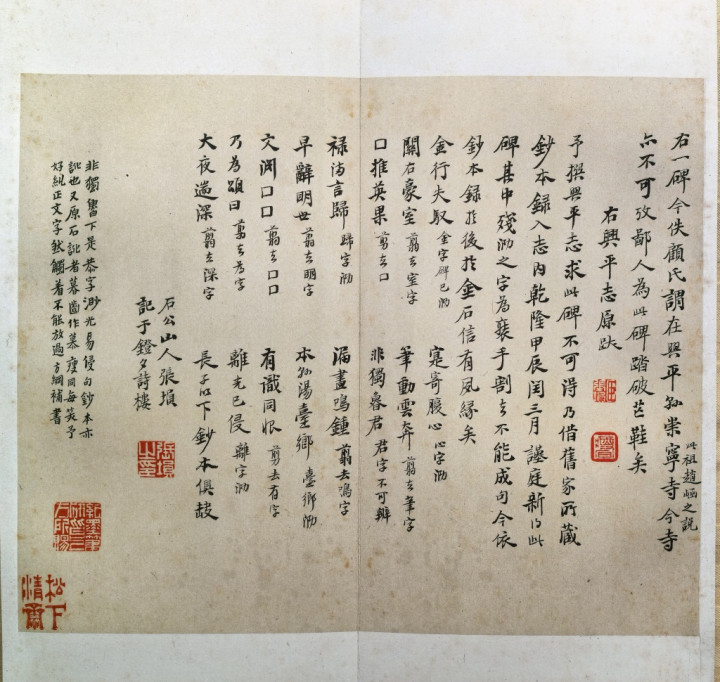 右一碑今佚顧氏謂在興平縣崇寧寺今寺
此祖趙崡之說
亦不可攷鄙人為此碑踏破芒鞋矣
右興平志原跋
予撰興平志求此碑不可得乃借舊家所藏
鈔本録入志内乾隆甲辰閏三月謹庭新得此
碑其中殘泐之字為裝手割去不能成句今依
鈔本録於後於金石信有風緣矣
金行失馭 金字碑已泐 寔寄腹心 心字泐
關右豪室 翦去室字 筆動雲奔 翦去筆字
口推英果 翦去口 非獨眷君 君字不可辨
禄洎言歸 歸字泐 漏盡鳴鍾 翦去鳴字
早辭明世 翦去明字 本縣湯臺鄉 臺鄉泐
文閏口口 翦去口口 有識同恨 剪去有字
乃為頌曰 翦去為字 離光已侵 離字泐
大夜遄深 翦去深字 長子以下鈔本俱缺
石公山人張塤
記于鐙夕詩樓
非獨眷下是恭字渺光易侵句鈔本亦
訛也又原石訛者慕啚作慕瘦同每笑予
好規正文字然觸着不能放過方綱補書
張塤之章
松下清齋